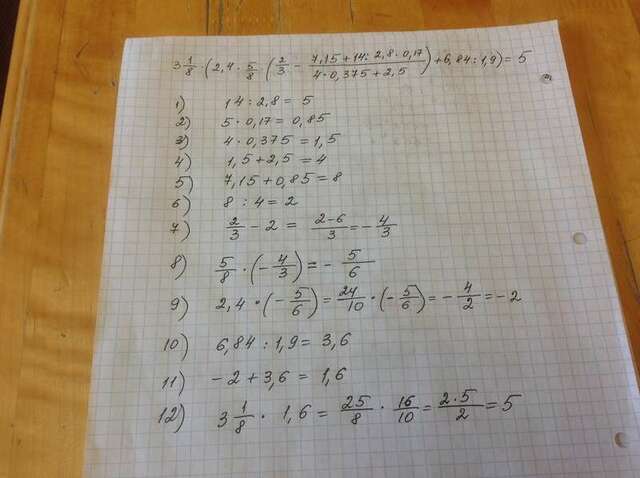 3 1/8 · (2,4 · 5/8 · (2/3 - (7,15+14 : 2,8 · 0,17)/(4 · 0,375+2,5)) + 6,84 : 1,9) = 5
1) 14 : 2,8 = 5
2) 5 · 0,17 = 0,85
3) 4 · 0,375 = 1,5
4) 1,5+2,5 = 4
5) 7,15+0,85 = 8
6) 8 : 4 = 2
7) 2/3 - 2 = (2-6)/3 = - 4/3
8) 5/8 · (- 4/3) = - 5/6
9) 2,4 · (- 5/6) = 24/10 · (- 5/6) = - 4/2 = -2
10) 6,84 : 1,9 = 3,6
11) -2+3,6 = 1,6
12) 3 1/8 · 1,6 = 25/8 · 16/10 = (2·5)/2 = 5